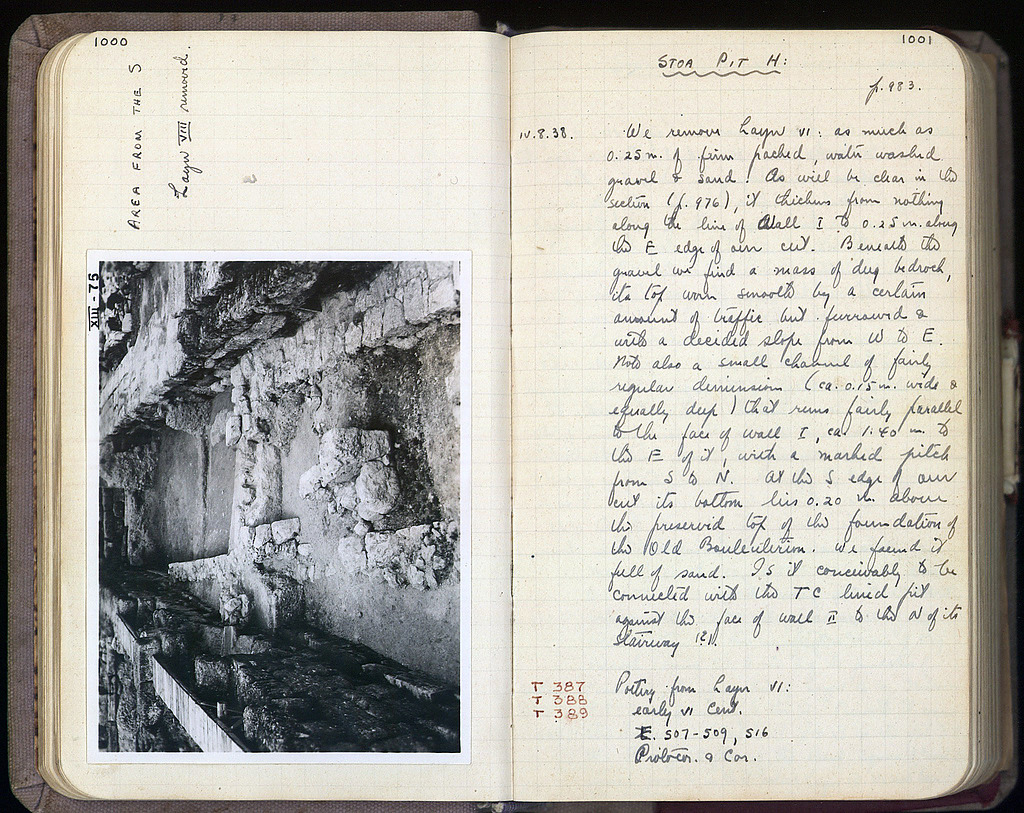 1000
AREA FROM THE S
Layer VIII removed.
XIII-75
1001
STOA PIT H:
p. 983.
IV.8.38.
We remove Layer VI: as much as
0.25 m. of firm packed, water washed
gravel & sand. As will be clear in the
section (p. 976), it thickens from nothing
along the line of Wall I to 0.25 m. along
the E edge of our cut. Beneath the
gravel we find a mass of dug bedrock,
its top worn smooth by a certain
amount of traffic but furrowed &
with a decided slope from W to E.
Note also a small channel of fairly
regular dimension (ca. 0.15 m. wide &
equally deep) that runs fairly parallel
to the face of wall I, ca. 1.40 m. to
the E of it, with a marked pitch
from S to N. At the S edge of our
cut its bottom lies 0.20 m. above
the preserved top of the foundation of
the Old Bouleuterion. We found it
full of sand. Is it conceivably to be
connected with the TC lined pit
against the face of wall II to the N of its
Stairway (?).
T 387
T 388
T 389
Pottery from Layer VI:
early VI Cent.
E. 507-509, 516
Protocor. & Cor.